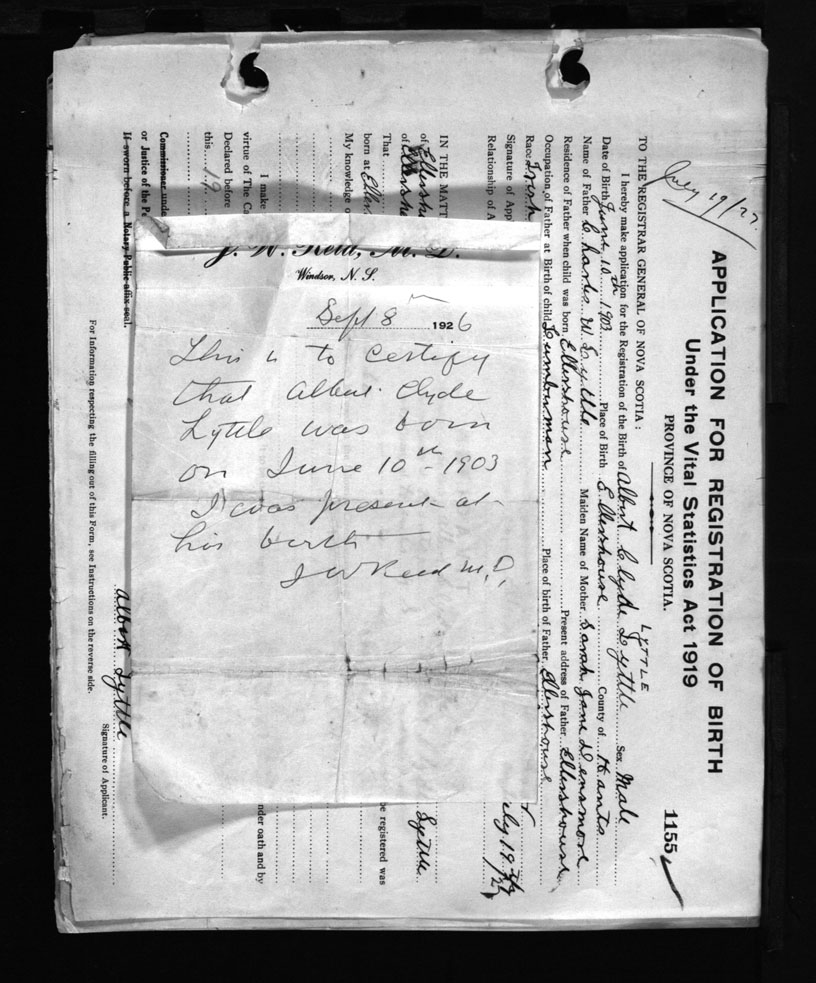 July 19/27.
APPLICATION FOR REGISTRATION OF BIRTH
Under the Vital Statistics Act 1919
PROVINCE OF NOVA SCOTIA.
1155
TO THE REGISTRAR GENERAL OF NOVA SCOTIA:
LYTTLE
I hereby make application for the Registration of the Birth of Albert Clyde Lyttle Sex Male
Date of Birth June 10th 1903 Place of Birth Ellershouse County of Hants
Name of Father Charles W Lyttle Maiden Name of Mother Sarah Jane Densmore
Residence of Father when child was born Ellershouse Present address of Father Ellershouse
Occupation of Father at Birth of child Lumberman Place of birth of Father Ellershouse
Race Irish
Signature of App
Relationship of A July 19
IN THE MATT
of Ellersho Lyttle
of Ellersho
That be registered was
born at Ellers
My knowledge o
I make nder oath and by
virtue of The Ca
Declared before
this 19
Commissioner unde
or Justice of the Pe
If sworn before a Notary Public affix seal.
Albert Lyttle
Signature of Applicant.
For Information respecting the filling out of this Form, see Instructions on the reverse side.
J. W. Reid, M. D.
Windsor, N. S.
Sept 8 1926
This is to certify
that Albert Clyde
Lyttle was born
on June 10th - 1903
I was present at
his birth
J W Reid M.D,